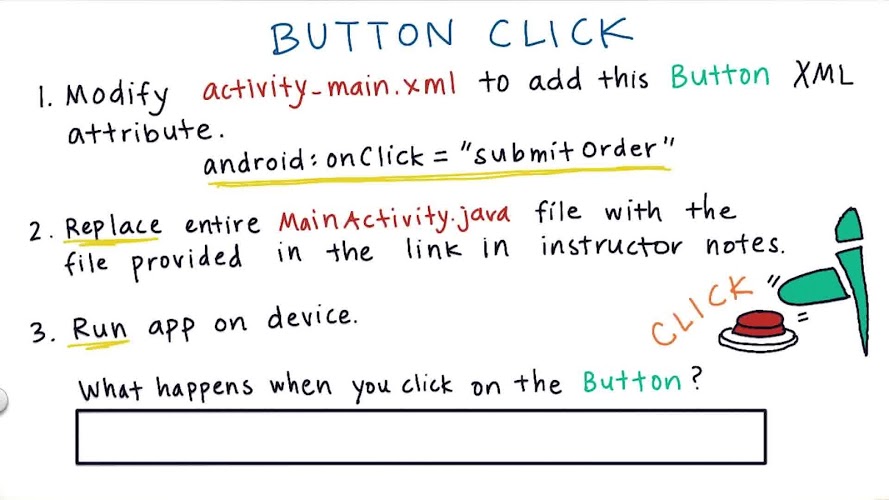 BUTTON CLICK
1. Modify activity_main.xml to add this Button XML
attribute.
android:onClick = "submitOrder"
2. Replace entire MainActivity.java file with the
file provided in the link in instructor notes.
CLICK
3. Run app on device.
What happens when you click on the Button?